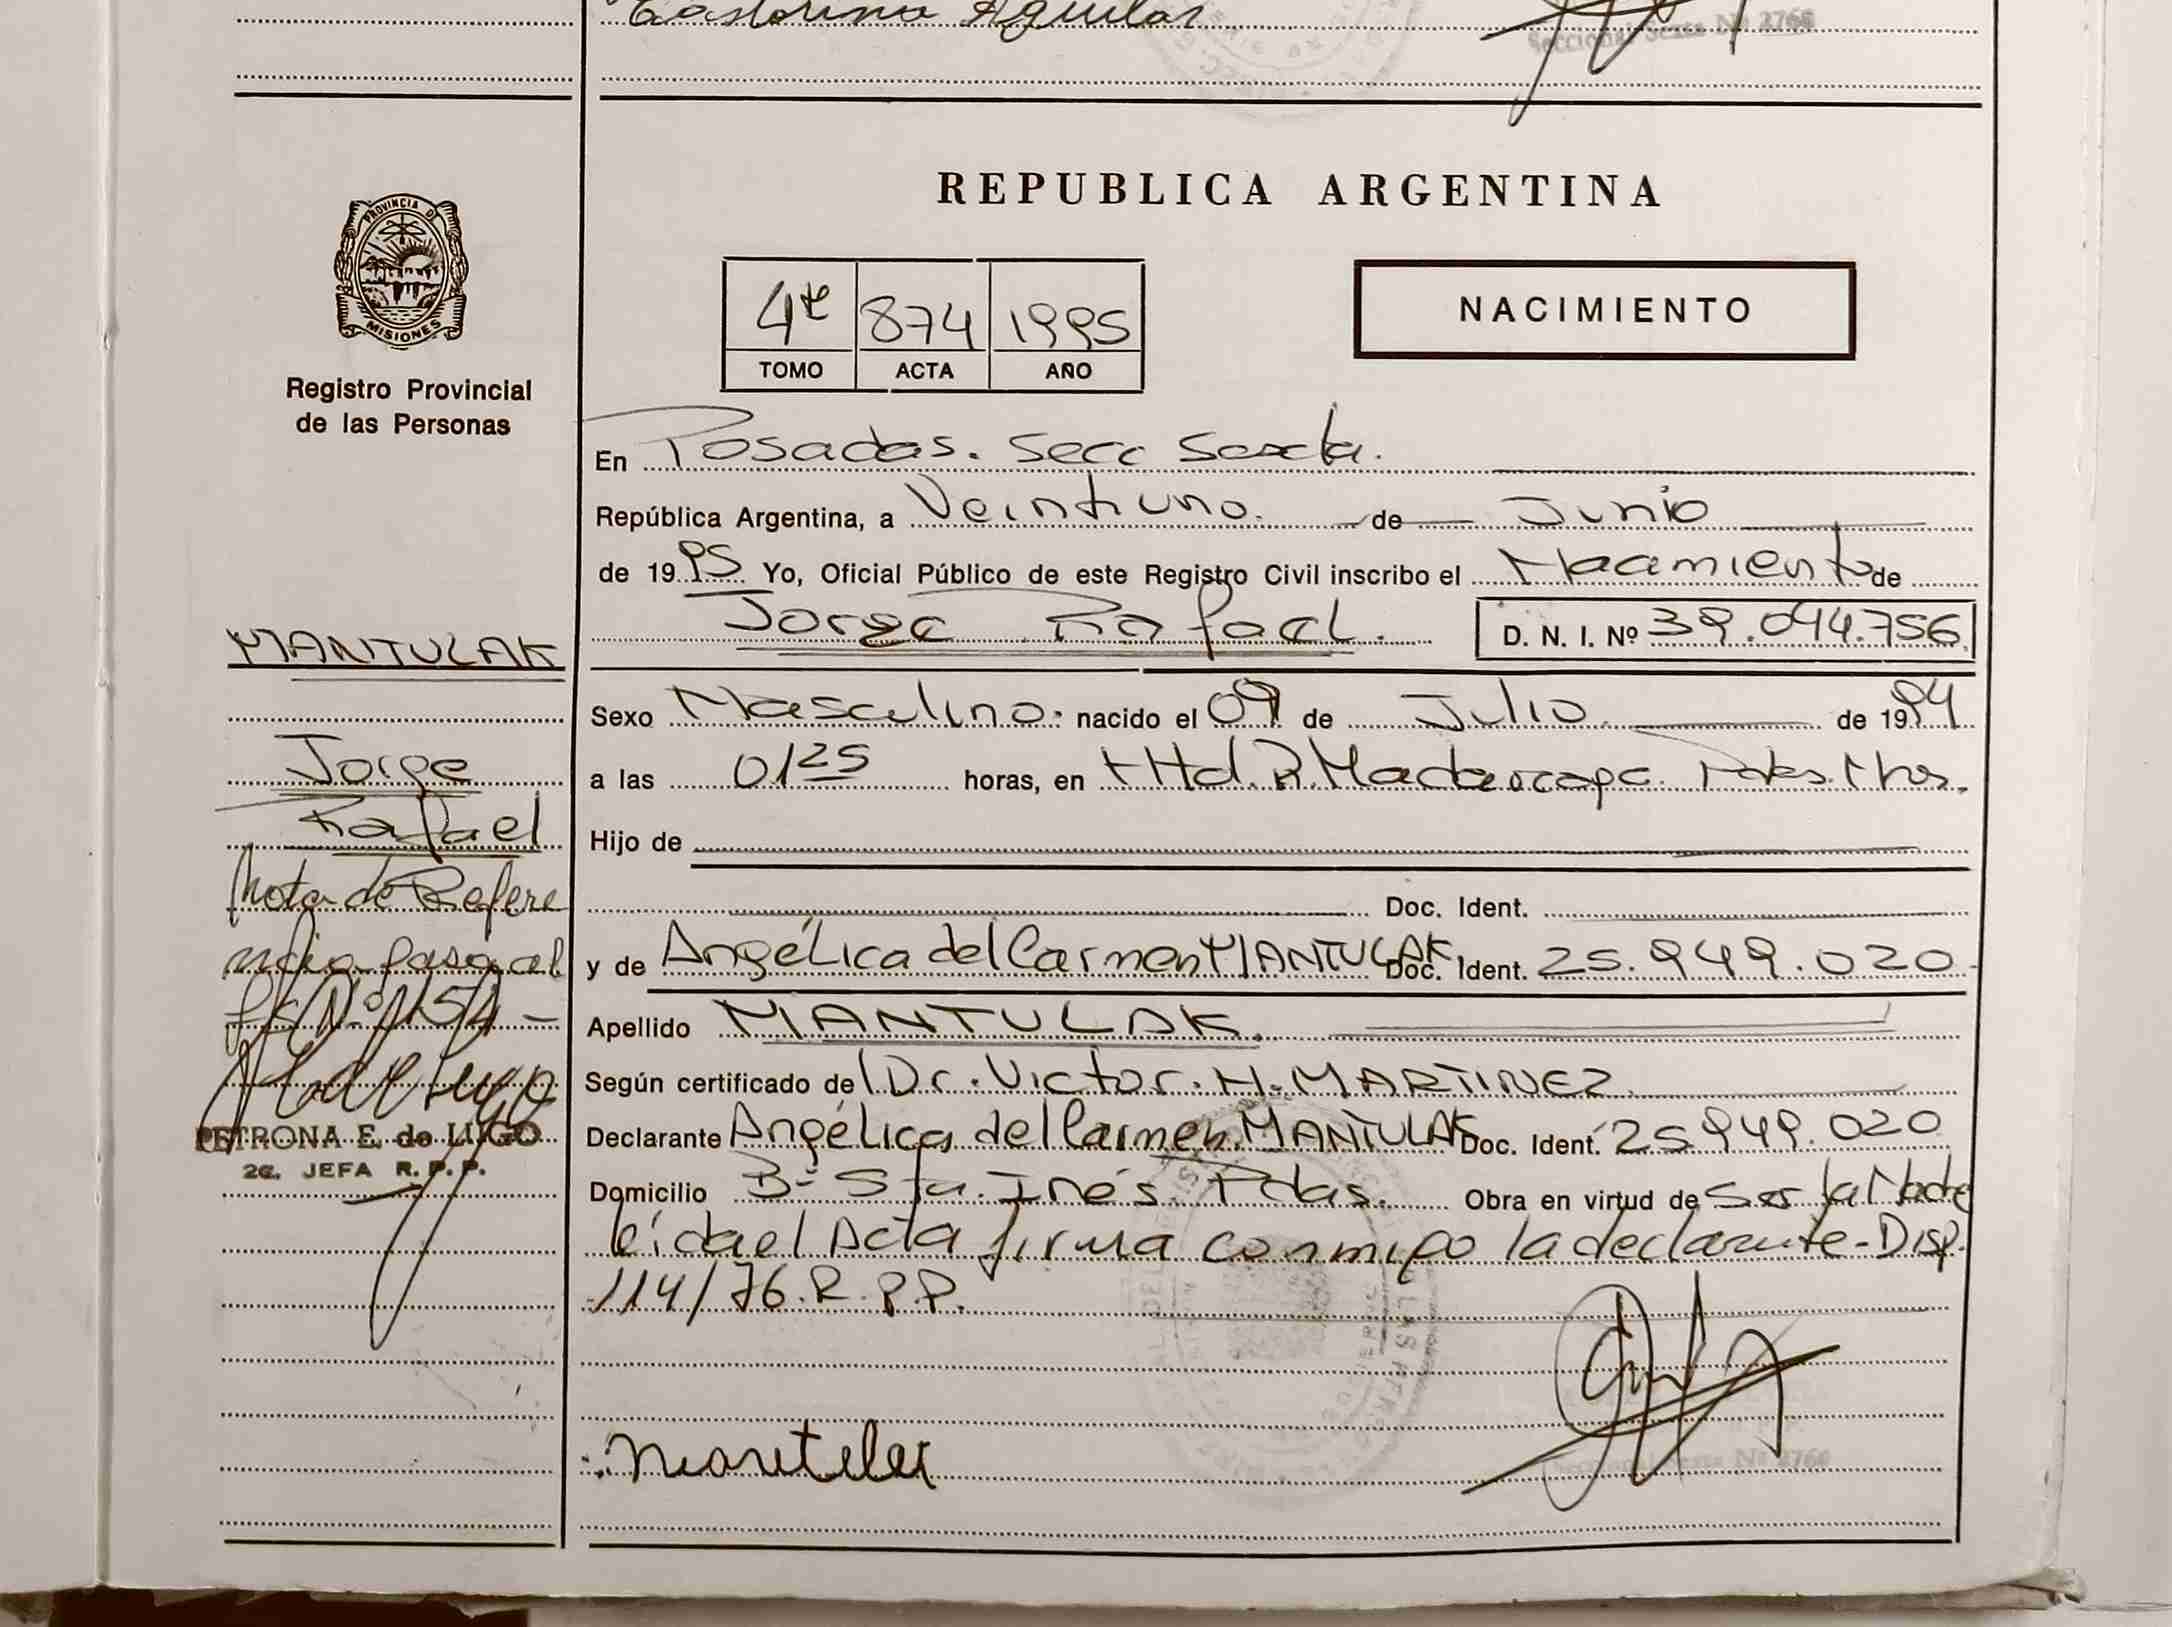 Castorina Aguilar
Seccional Sexta Nº 2766
PROVINCIA DE
MISIONES
Registro Provincial
de las Personas
REPUBLICA ARGENTINA
4to 874 1995
TOMO ACTA AÑO
NACIMIENTO
En Posadas. Secc Sexta.
República Argentina, a Veintiuno. de Junio
de 1995 Yo, Oficial Público de este Registro Civil inscribo el Nacimiento de
Jorge Rafael. D. N. I. Nº 39.044.756
MANTULAK
Sexo Masculino. nacido el 09 de Julio de 1994
Jorge
a las 01 25 horas, en Htal. R. Madariaga. Pdas. Mnes.
Rafael
Hijo de
Nota de Refere
Doc. Ident.
ncia
y de Angélica del Carmen MANTULAK Doc. Ident. 25.949.020
Apellido MANTULAK.
Según certificado de Dr. Victor. H. MARTINEZ
PETRONA E. de LUGO
Declarante Angélica del Carmen MANTULAK Doc. Ident. 25.949.020
2a. JEFA R. P. P.
Domicilio Bº Sta. Inés. Pdas. Obra en virtud de Ser la Madre
leída el Acta firma conmigo la declarante - Disp.
114/76. R. P. P.
Seccional Sexta Nº 2766